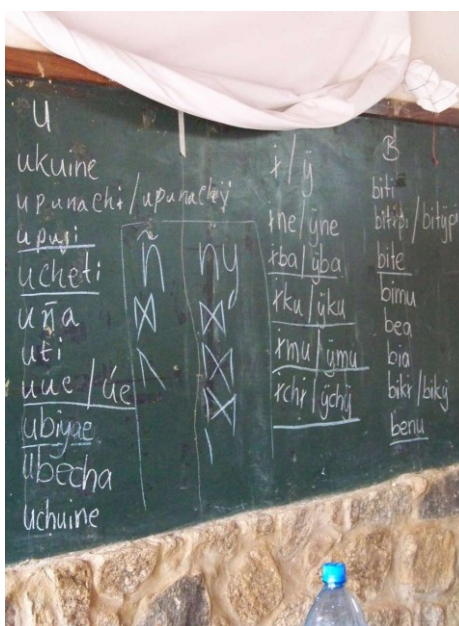 U
ukuine
upunachɨ/upunachÿ
upuji
ucheti
uña
uti
uue/úe
ubiyae
ubecha
uchuine
ñ
ny
ɨ/ÿ
ɨne/ÿne
ɨba/ÿba
ɨku/ÿku
ɨmu/ÿmu
ɨchɨ/ÿchÿ
B
biti
bitɨpi/bitÿpi
bite
bimu
bea
bia
bikɨ/bikÿ
benu